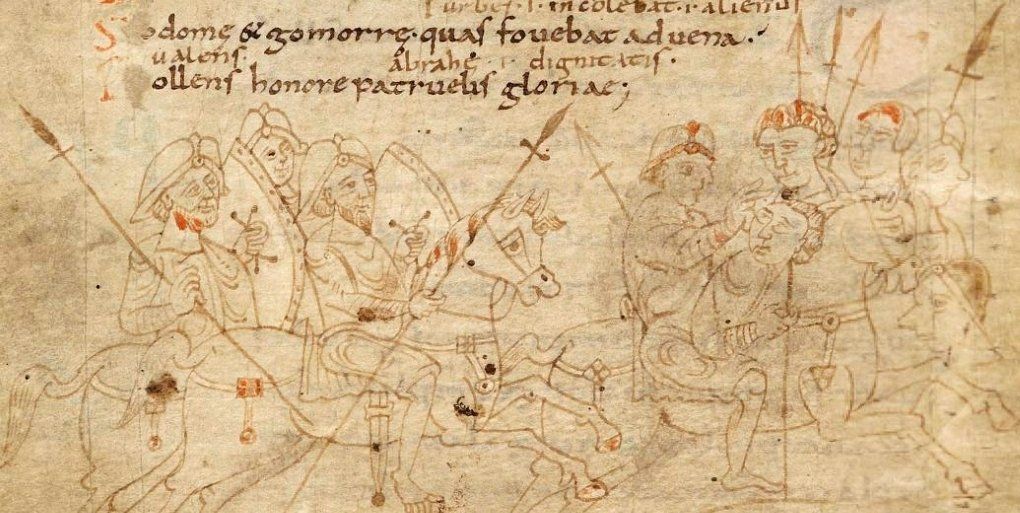 s urbes .i. incolebat .i. alienus
Sodomę & gomorrę. quas fovebat advena.
valens. abrahę .i. dignitatis.
Pollens honore patruelis gloriae;